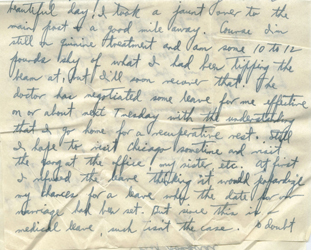 beautiful day! I took a jaunt over to the
main post & a good mile away. Course I'm
still on quinine treatment and am some 10 to 12
pounds shy of what I had been tipping the
beam at, but I'll soon recover that. The
doctor has negotiated some leave for me effective
on or about next Tuesday with the understanding
that I go home for a recuperative rest. Still
I hope to visit Chicago sometime and visit
the gang at the office, my sister etc. At first
I the leave thinking it would jeopardize
my chances for a leave when the date for
marriage had been set. But since this is
medical leave, such isn't the case. doubt